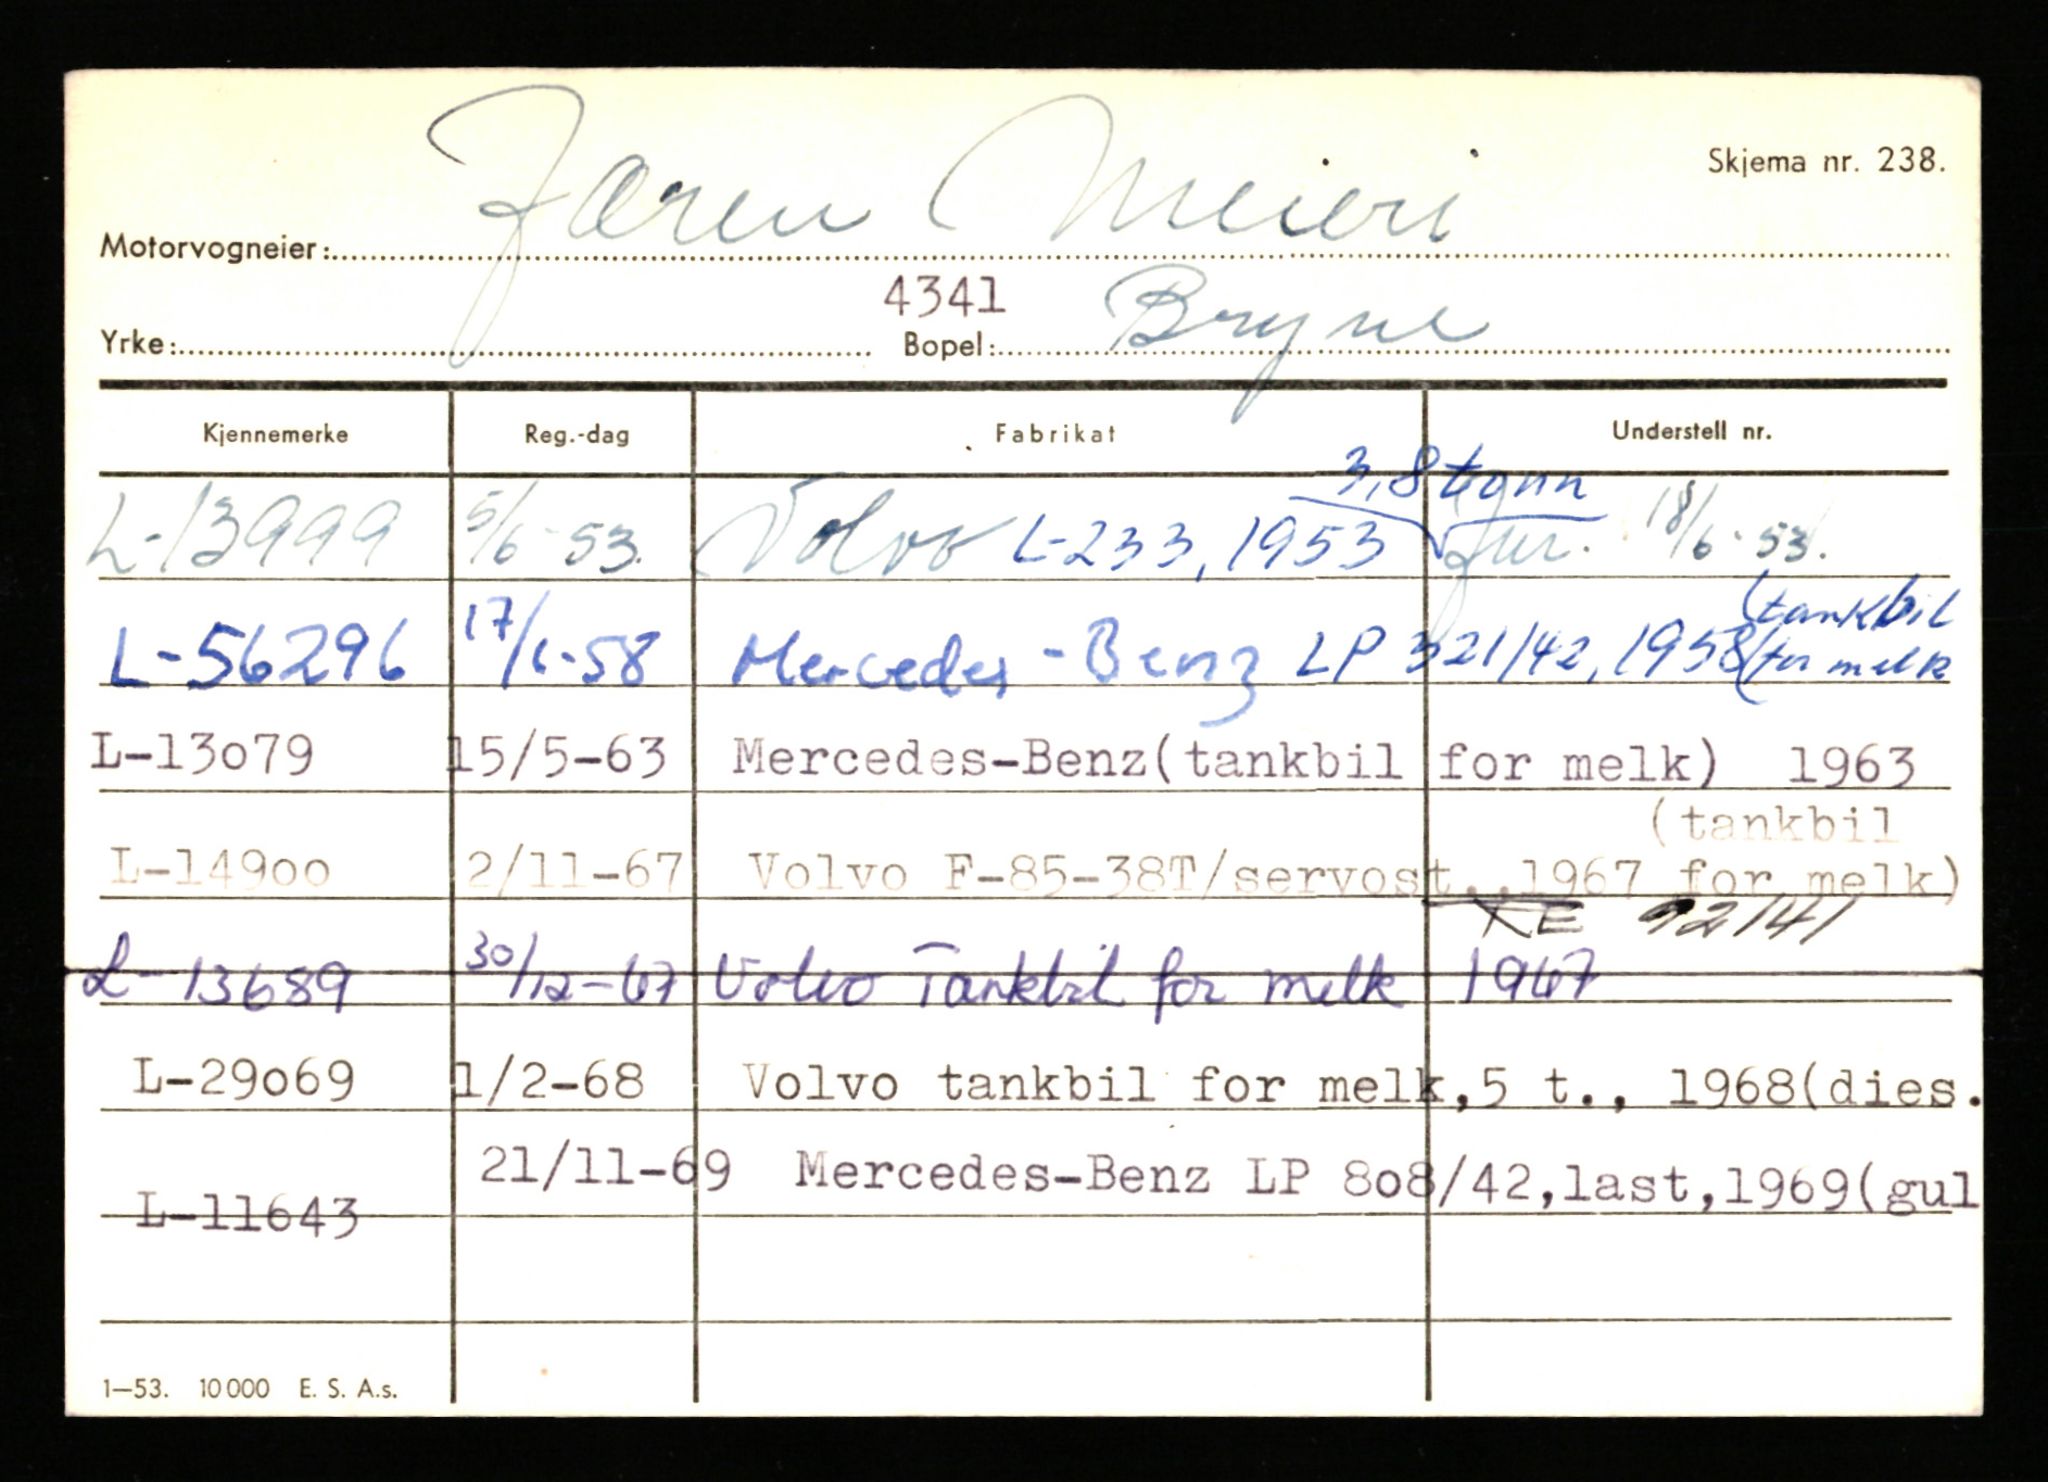 Skjema nr. 238.
Motorvogneier: Jæren Meieri
4341
Yrke: Bopel: Bryne
Kjennemerke Reg.-dag Fabrikat Understell nr.
3,8 tonn
L-13999 5/6-53. Volvo L-233, 1953 Jur. 18/6-53.
(tankbil
L-56296 17/6-58 Mercedes-Benz LP 321/42, 1958 (for melk
L-13o79 15/5-63 Mercedes-Benz(tankbil for melk) 1963
(tankbil
L-149oo 2/11-67 Volvo F-85-38T/servost.,1967 for melk)
KE 92141
L-13689 30/12-67 Volvo Tankbil for melk 1967
L-29o69 1/2-68 Volvo tankbil for melk,5 t., 1968(dies.
21/11-69 Mercedes-Benz LP 8o8/42,last,1969(gul
L-11643
1-53. 10000 E. S. A.s.